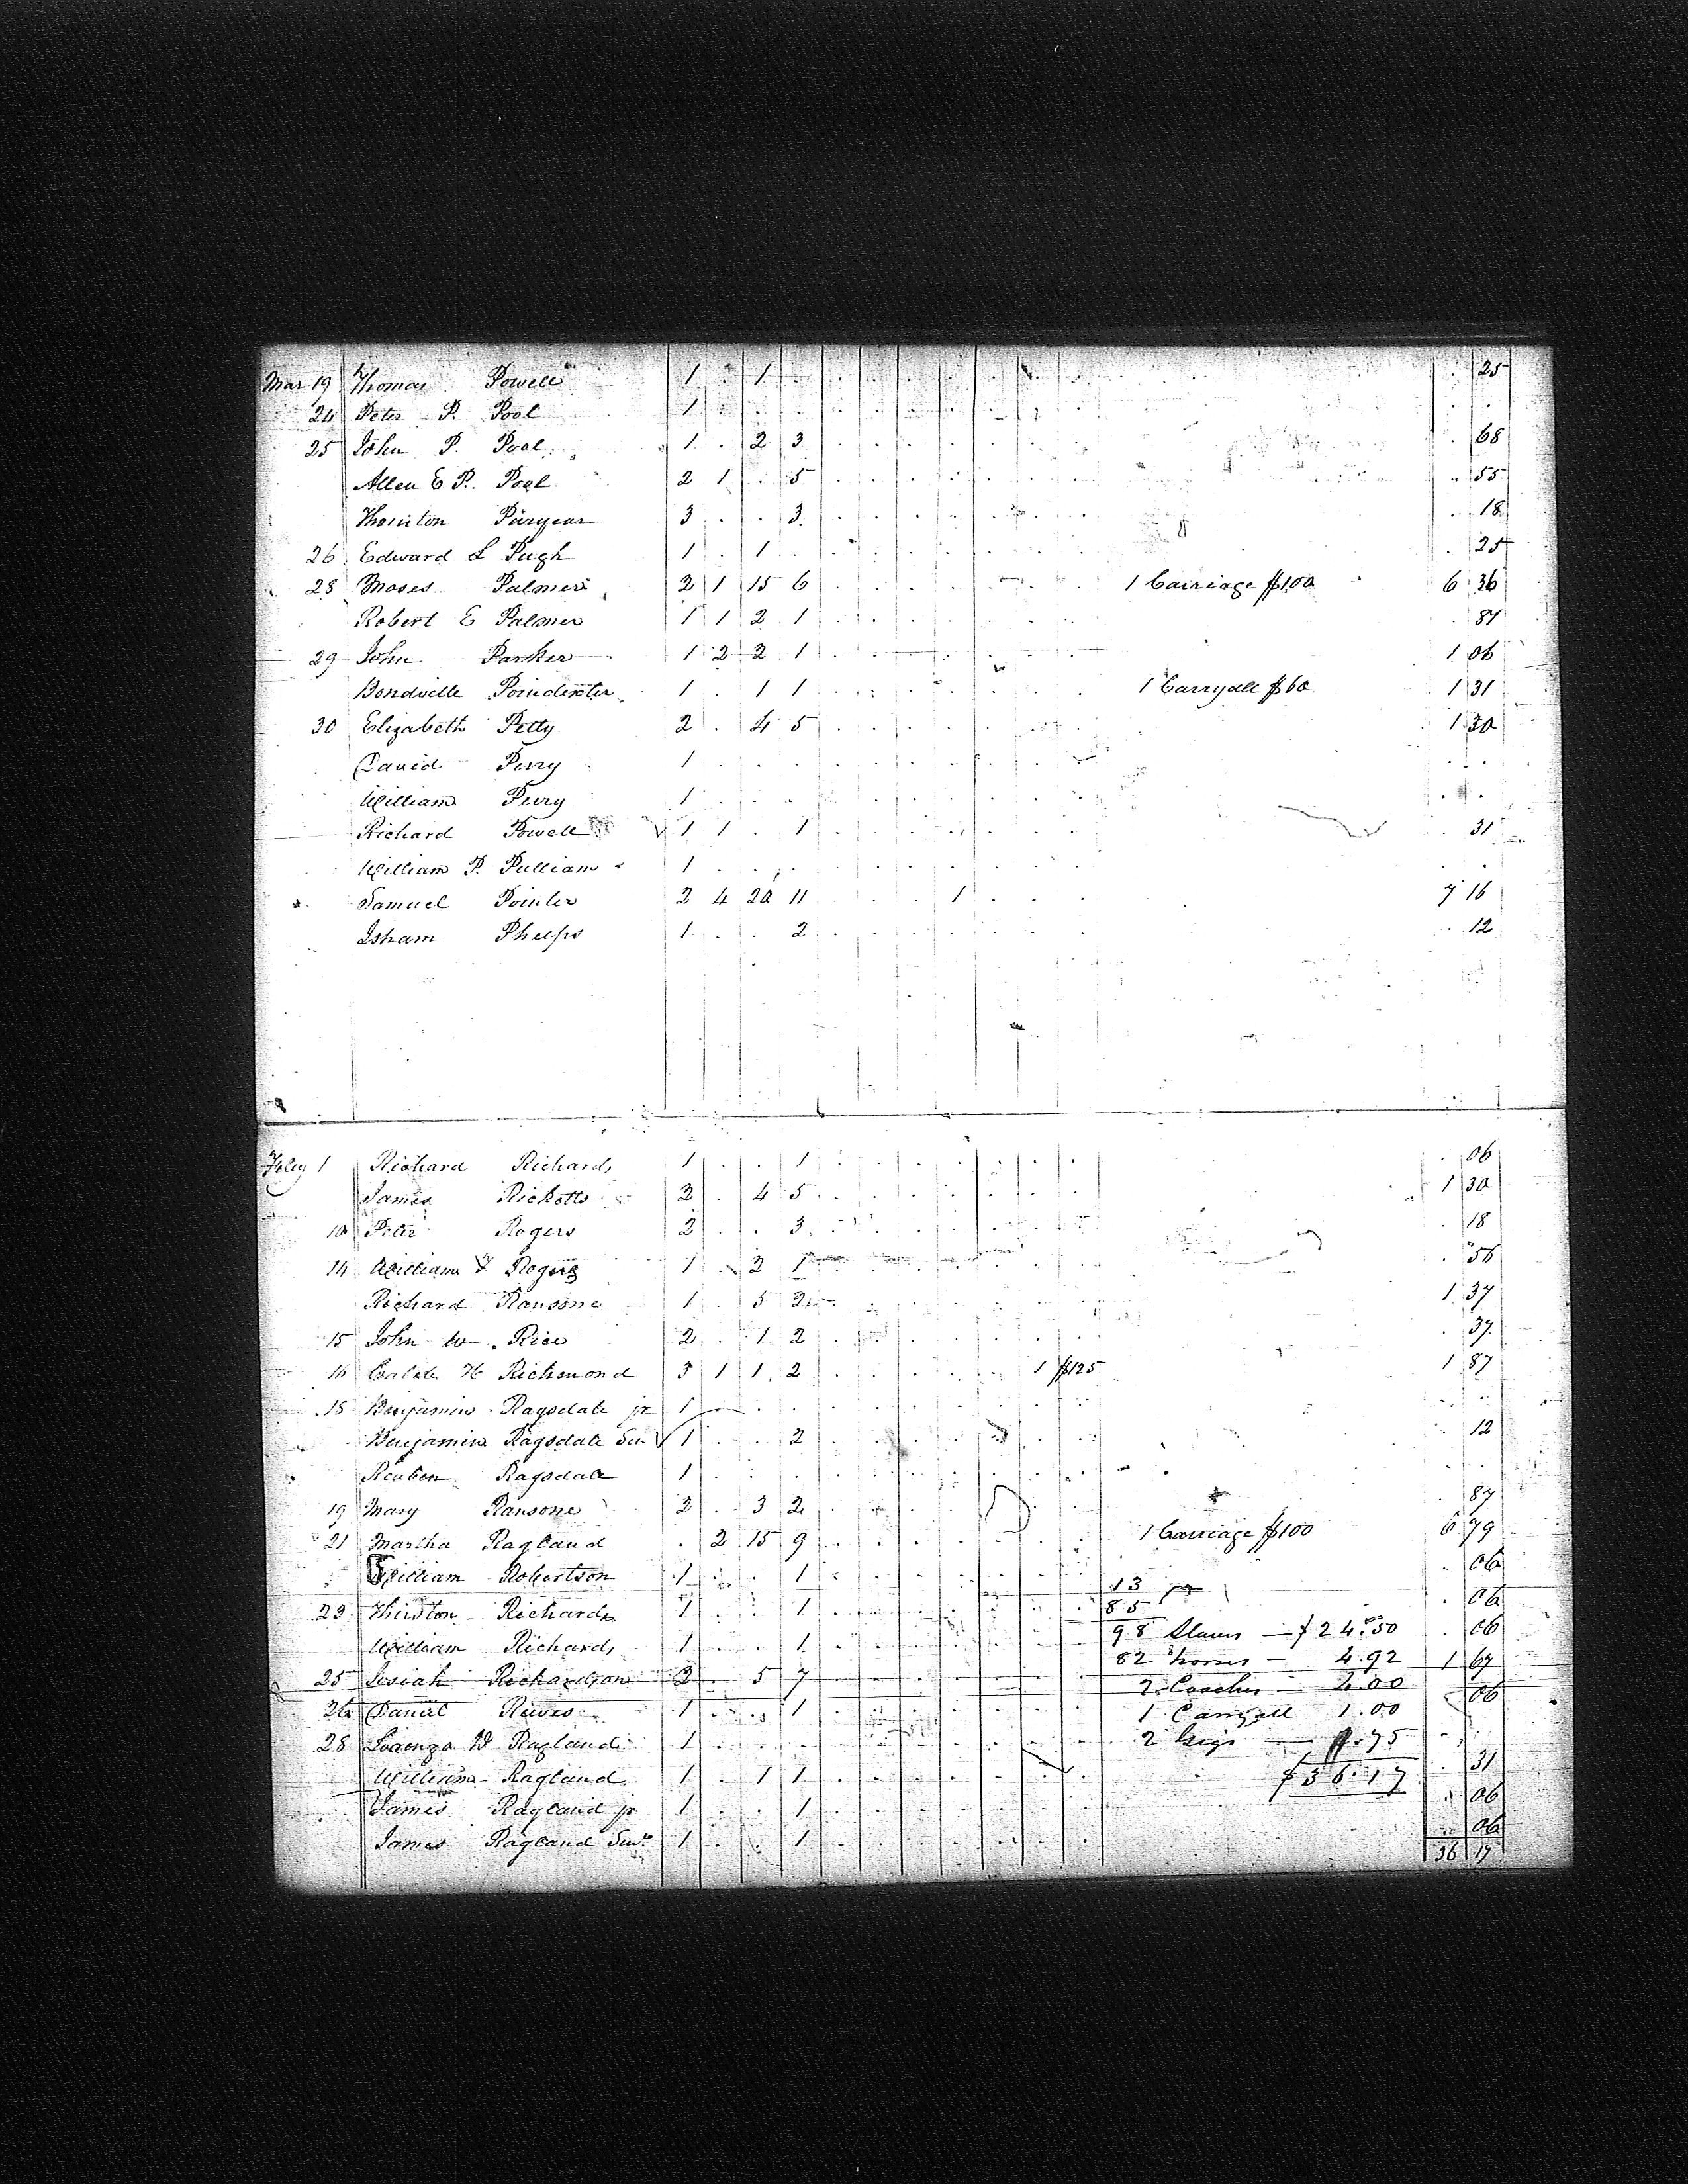 Mar 19 Thomas Powell 1 . 1 . 25
24 Peter P. Pool 1
25 John P. Pool 1 . 2 3 . 68
Allen E P. Pool 2 1 . 5 . 55
Thornton Puryear 3 . . 3 . 18
26 Edward L Pugh 1 . 1 . 25
28 Moses Palmer 2 1 15 6 1 Carriage $100 6 36
Robert E Palmer 1 1 2 1 . 87
29 John Parker 1 2 2 1 1 06
Bondville Poindexter 1 . 1 1 1 Carryall $60 1 31
30 Elizabeth Petty 2 . 4 5 1 30
David Perry 1
William Perry 1
Richard Powell 1 1 . 1 . 31
William P. Pulliam 1
Samuel Pointer 2 4 20 11 1 7 16
Isham Phelps 1 . . 2 . 12
Feby 1 Richard Richards 1 . . 1 . 06
James Ricketts 2 . 4 5 1 30
10 Peter Rogers 2 . . 3 . 18
14 William Rogers 1 . 2 1 . 56
Richard Ransone 1 . 5 2 1 37
15 John W. Rice 2 . 1 2 . 37
16 H Richmond 3 1 1 2 1 $125 1 87
18 Benjamin Ragsdale jr 1
Benjamin Ragsdale Sen 1 . . 2 . 12
Reuben Ragsdale 1
19 Mary Ransone 2 . 3 2 . 87
21 Martha Ragland . 2 15 9 1 Carriage $100 6 79
William Robertson 1 . . 1 13 . 06
23 Thurston Richards 1 . . 1 85 . 06
William Richards 1 . . 1 98 Slaves — $24.50 . 06
25 Josiah Richardson 2 . 5 7 82 horses — 4.92 1 67
26 Daniel Reives 1 . . 1 2 Coaches — 4.00 . 06
28 Lorenzo D Ragland 1 1 Carryall 1.00
William Ragland 1 . 1 1 2 Gigs — 1.75 . 31
James Ragland jr 1 . . 1 $36.17 . 06
James Ragland Senr 1 . . 1 . 06
36 17